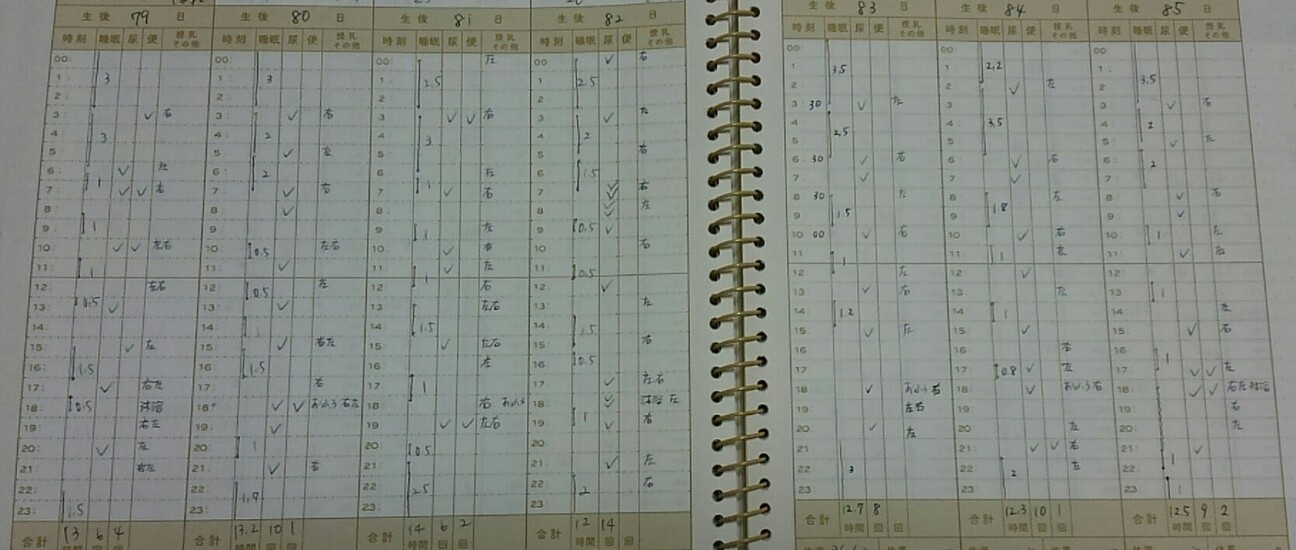 生後 79 日 生後 80 日 生後 81 日 生後 82 日 生後 83 日 生後 84 日 生後 85 日
時刻 睡眠 尿 便 授乳その他 時刻 睡眠 尿 便 授乳その他 時刻 睡眠 尿 便 授乳その他 時刻 睡眠 尿 便 授乳その他 時刻 睡眠 尿 便 授乳その他 時刻 睡眠 尿 便 授乳その他 時刻 睡眠 尿 便 授乳その他
00: 00: 00: 左 00: 右 00 00 00
1: 3 1: 3 1: 2.5 1: 2.5 1 3.5 1 2.2 1 3.5
2: 2: 2: 2: 2 2 ✓ 左 2
3: ✓ 右 3: ✓ 右 3: ✓ ✓ 右 3: ✓ 左 3 30 ✓ 左 3 3 ✓ 右
4: 3 4: 2 4: 3 4: 2 4 2.5 4 3.5 4 2
5: 5: ✓ 左 5: 5: 右 5 5 5 ✓ 左
6: ✓ 左 6: 2 6: 左 6: 1.5 6 30 ✓ 右 6 ✓ 右 6 2
7: 1 ✓ ✓ 右 7: ✓ 右 7: 1 ✓ 右 7: ✓ 右 7 ✓ 7 ✓ 7
8: 8: ✓ 8: 8: ✓ 左 8 30 左 8 左 8 ✓ 右
9: 1 9: 9: 1 左 9: 0.5 ✓ 9 1.5 9 1.8 9 ✓
10: ✓ ✓ 左右 10: 0.5 左右 10: ✓ 右 10: 右 10 00 ✓ 右 10 ✓ 右 10 1 左
11: 1 11: ✓ 11: ✓ 左 11: 0.5 11 1 11 1 左 11 ✓ 右
12: 左右 12: 0.5 左 12: 1 右 12: ✓ 12 左 12 ✓ 12
13: 0.5 ✓ 13: ✓ 13: 左右 13: 左 13 ✓ 右 13 左 13 1
14: 14: 1 14: 1.5 14: 1.5 14 1.2 14 1 14 左
15: ✓ 左 15: ✓ 右左 15: ✓ 左右 15: 右 15 ✓ 左 15 ✓ 15 ✓ 右
16: 1.5 16: 1.5 16: 左 16: 0.5 16 16 右 16 1
17: ✓ 右左 17: 右 17: 1 17: ✓ 左右 17 17 0.8 ✓ 左 17 ✓ ✓ 左
18: 0.5 沐浴 18: ✓ ✓ おふろ 右左 18: 右 おふろ 18: ✓ 沐浴 左 18 ✓ おふろ 右 18 ✓ おふろ 右 18 ✓ ✓ 右左 沐浴
19: 右左 19: ✓ 19: ✓ ✓ 左右 19: 1 ✓ 右 19 左右 19 19 右
20: ✓ 左 20: 1 20: 0.5 20: 20 ✓ 左 20 左 20 左
21: 右左 21: ✓ 右 21: 21: ✓ 左 21 21 ✓ ✓ 右 21 ✓
22: 22: 1.7 22: 2.5 22: 2 右 22 3 22 2 左 22 1
23: 1.5 23: 23: 23: 23 23 23 1
合計 13時間 6回 4回 合計 13.2時間 10回 1回 合計 14時間 6回 2回 合計 12時間 14回 回 合計 12.7時間 8回 回 合計 12.3時間 10回 1回 合計 12.5時間 9回 2回